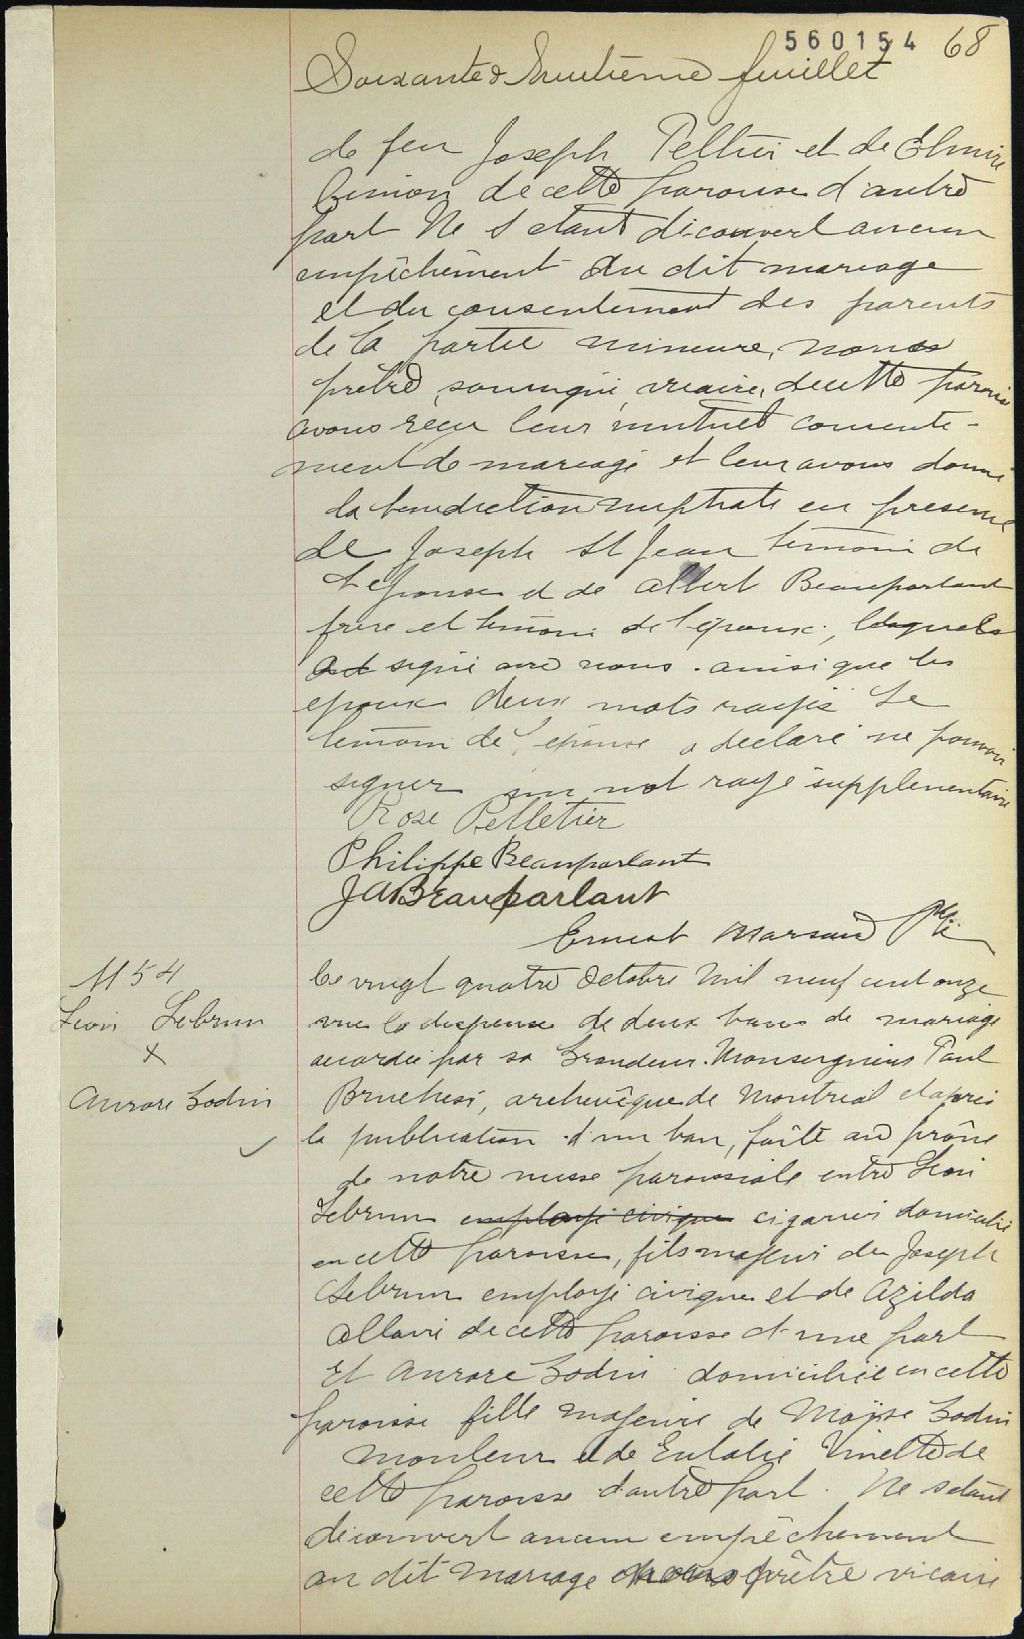 560154 68
Soixante & huitième feuillet
de feu Joseph Pelletier et de Elmire
Simon de cette paroisse d'autre
part Ne s'étant découvert aucun
empêchement au dit mariage
et du consentement des parents
de la partie mineure, nous
prêtre, soussigné, vicaire, de cette paroisse
avons reçu leur mutuel consente-
ment de mariage et leur avons donné
la bénédiction nuptiale en présence
de Joseph St Jean témoin de
l'épouse et de Albert Beauparlant
frère et témoin de l'époux, lesquels
ont signé avec nous. ainsi que les
époux deux mots rayés Le
témoin de l'épouse a déclaré ne pouvoir
signer un mot rayé supplémentaire
Rose Pelletier
Philippe Beauparlant
JA Beauparlant
Ernest Ptre
M 54
Léon Lebrun
x
Aurore Godin
Le vingt quatre Octobre mil neuf cent onze
vue la dispense de deux bans de mariage
accordée par sa Grandeur Monseigneur Paul
Bruchesi, archevêque de Montréal et après
la publication d'un ban, faite au prône
de notre messe paroissiale entre Léon
Lebrun employé civique cigarier domicilié
en cette paroisse, fils majeur de Joseph
Lebrun employé civique et de Azilda
Allaire de cette paroisse d'une part
Et Aurore Godin domiciliée en cette
paroisse fille majeure de Moïse Godin
mouleur et de Eulalie Vinette de
cette paroisse d'autre part. Ne s'étant
découvert aucun empêchement
au dit mariage nous prêtre vicaire